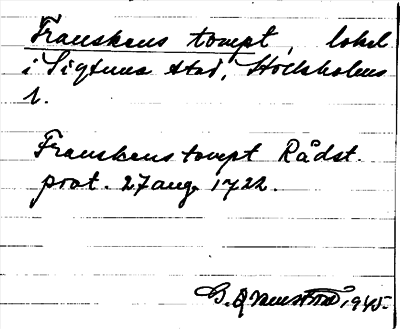 Franskens tompt, lokal
i Sigtuna stad, Stockholms
l.
Franskens tompt Rådst.
prot. 27 aug. 1722.
G. 1945.